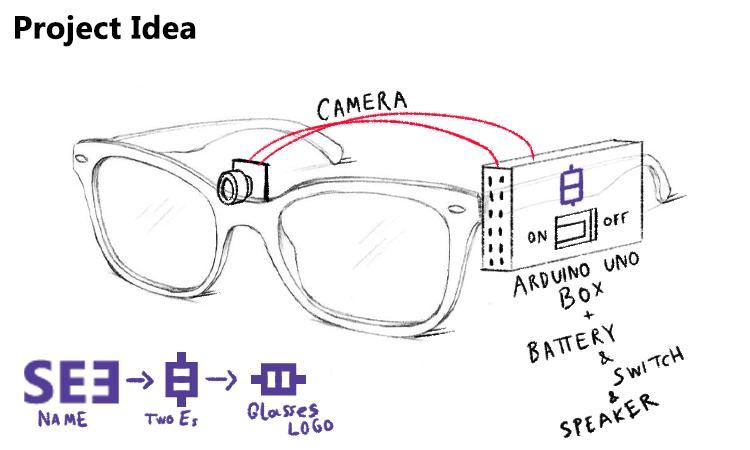 Project Idea
CAMERA
ON OFF
ARDUINO UNO
BOX
+
BATTERY
&
SWITCH
&
SPEAKER
SEƎ
NAME
TWO Es
Glasses
LOGO